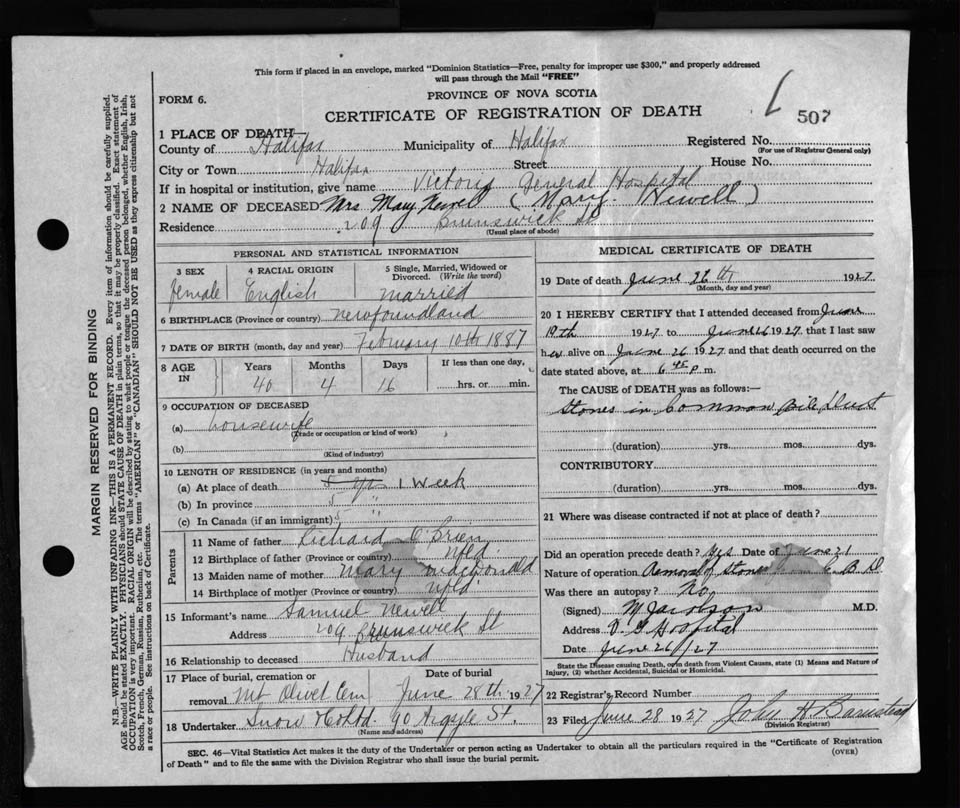 This form if placed in an envelope, marked "Dominion Statistics—Free, penalty for improper use $300," and properly addressed
will pass through the Mail "FREE"
FORM 6.
PROVINCE OF NOVA SCOTIA
CERTIFICATE OF REGISTRATION OF DEATH
507
1 PLACE OF DEATH—
County of Halifax Municipality of Halifax Registered No.
(For use of Registrar General only)
City or Town Halifax Street House No.
If in hospital or institution, give name Victoria General Hospital
2 NAME OF DECEASED Mrs. Mary Newell (Mary Newell)
Residence 209 Brunswick St
(Usual place of abode)
PERSONAL AND STATISTICAL INFORMATION
3 SEX 4 RACIAL ORIGIN 5 Single, Married, Widowed or Divorced. (Write the word)
female English married
6 BIRTHPLACE (Province or country) Newfoundland
7 DATE OF BIRTH (month, day and year) February 10th 1887
8 AGE IN Years Months Days If less than one day,
40 4 16 hrs. or min.
9 OCCUPATION OF DECEASED
(a) housewife
(Trade or occupation or kind of work)
(b)
(Kind of industry)
10 LENGTH OF RESIDENCE (in years and months)
(a) At place of death 5 yrs 1 Week
(b) In province 5 "
(c) In Canada (if an immigrant) 5 "
Parents
11 Name of father Richard O'Brien
12 Birthplace of father (Province or country) Nfld.
13 Maiden name of mother Mary MacDonald
14 Birthplace of mother (Province or country) Nfld
15 Informant's name Samuel Newell
Address 209 Brunswick St
16 Relationship to deceased Husband
17 Place of burial, cremation or removal Date of burial
Mt Olivet Cem June 28th 1927
18 Undertaker Snow & Co Ltd 90 Argyle St.
(Name and address)
MEDICAL CERTIFICATE OF DEATH
19 Date of death June 26th 1927
(Month, day and year)
20 I HEREBY CERTIFY that I attended deceased from June
19th 1927 to June 26 1927, that I last saw
her alive on June 26 1927 and that death occurred on the
date stated above, at 6 45 p m.
The CAUSE of DEATH was as follows:—
Stones in Common Bile Duct
(duration) yrs. mos. dys.
CONTRIBUTORY
(duration) yrs. mos. dys.
21 Where was disease contracted if not at place of death?
Did an operation precede death? Yes Date of June 21
Nature of operation Removal of Stones from C. B. D.
Was there an autopsy? No
(Signed) M Jacobson M.D.
Address V. G Hospital
Date June 26/27
State the Disease causing Death, or in death from Violent Causes, state (1) Means and Nature of
Injury, (2) whether Accidental, Suicidal or Homicidal.
22 Registrar's Record Number
23 Filed June 28 1927 John A Barnstead
(Division Registrar)
SEC. 46—Vital Statistics Act makes it the duty of the Undertaker or person acting as Undertaker to obtain all the particulars required in the "Certificate of Registration
of Death" and to file the same with the Division Registrar who shall issue the burial permit.
(OVER)
MARGIN RESERVED FOR BINDING
N.B.—WRITE PLAINLY WITH UNFADING INK—THIS IS A PERMANENT RECORD. Every item of information should be carefully supplied.
AGE should be stated EXACTLY. PHYSICIANS should STATE CAUSE OF DEATH in plain terms, so that it may be properly classified. Exact statement of
OCCUPATION is very important. RACIAL ORIGIN will be described by stating to what people or tongue the deceased person belonged, whether English, Irish,
Scotch, French, German, Russian, Ruthenian, etc. The terms "AMERICAN" or "CANADIAN" SHOULD NOT BE USED as they express citizenship but not
a race or people. See instructions on back of Certificate.